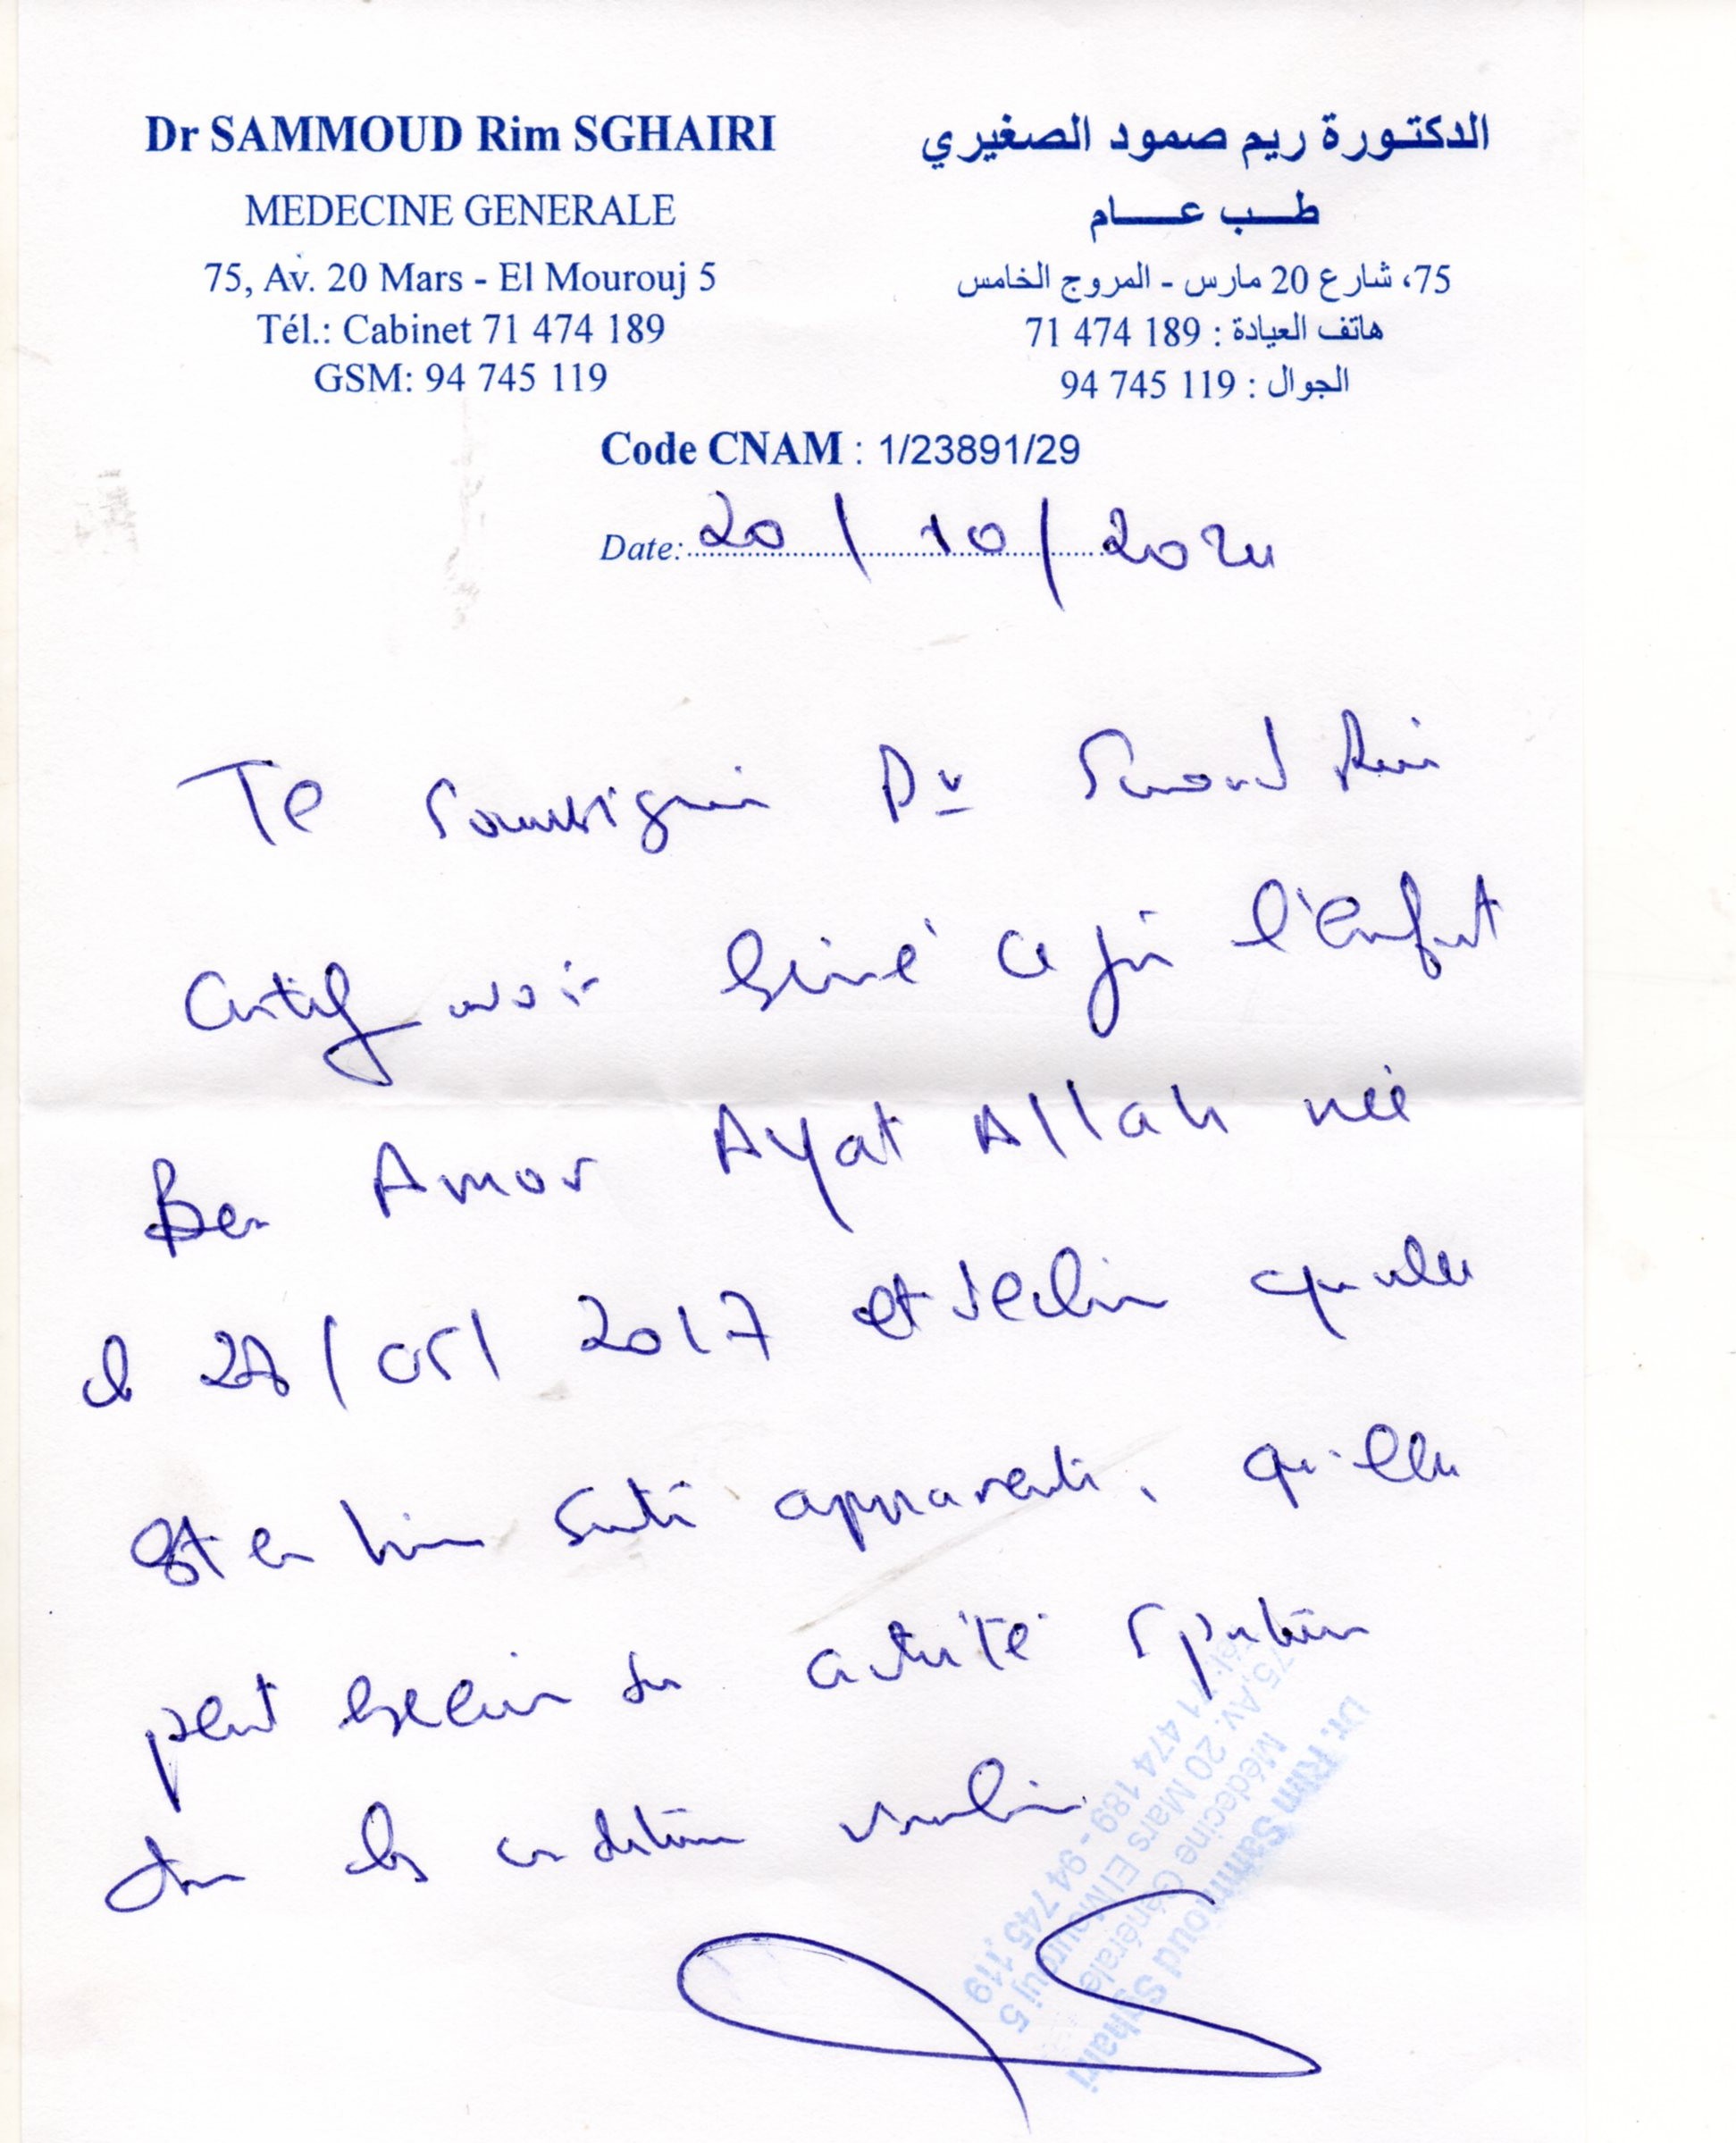 Dr SAMMOUD Rim SGHAIRI
MEDECINE GENERALE
75, Av. 20 Mars - El Mourouj 5
Tél.: Cabinet 71 474 189
GSM: 94 745 119
الدكتورة ريم صمود الصغيري
طب عام
75، شارع 20 مارس - المروج الخامس
هاتف العيادة : 189 474 71
الجوال : 119 745 94
Code CNAM : 1/23891/29
Date: 20 / 10 / 2024
Je soussigné Dr Samoud Rim
certifie avoir examiné ce jour l'enfant
Ben Amor Ayat Allah née
le 28/05/2017 et déclare qu'elle
est en bonne santé apparente, qu'elle
peut exercer une activité sportive
dans les conditions
Dr. Rim Sammoud Sghairi
Médecine Générale
75, Av. 20 Mars El Mourouj 5
Tél: 71 474 189 - 94 745 119